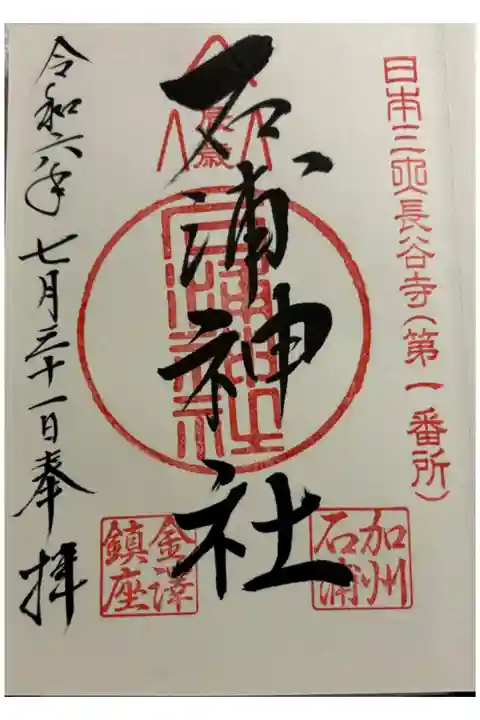 日本三所長谷寺(第一番所)
加州
石浦
石浦神社
辰歳
石浦神社
金澤
鎮座
令和六年 七月三十一日奉拝